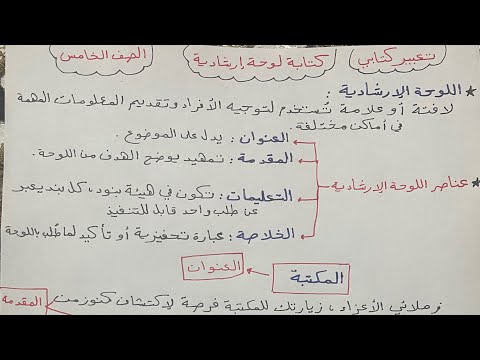 تعبير كتابي كتابة لوحة إرشادية الصف الخامس
اللوحة الإرشادية :
لافتة أو علامة تُستخدم لتوجيه الأفراد وتقديم المعلومات المهمة
في أماكن مختلفة .
العنوان : يدل على الموضوع .
المقدمة : تمهيد يوضح الهدف من اللوحة .
عناصر اللوحة الإرشادية
التعليمات : تكون في هيئة بنود، كل بند يعبر
عن طلب واحد قابل للتنفيذ
الخلاصة : عبارة تحفيزية أو تأكيد لما طُلب باللوحة
المكتبة العنوان
زملائي الأعزاء ، زيارتك للمكتبة فرصة لاكتشاف كنوز من
المقدمة